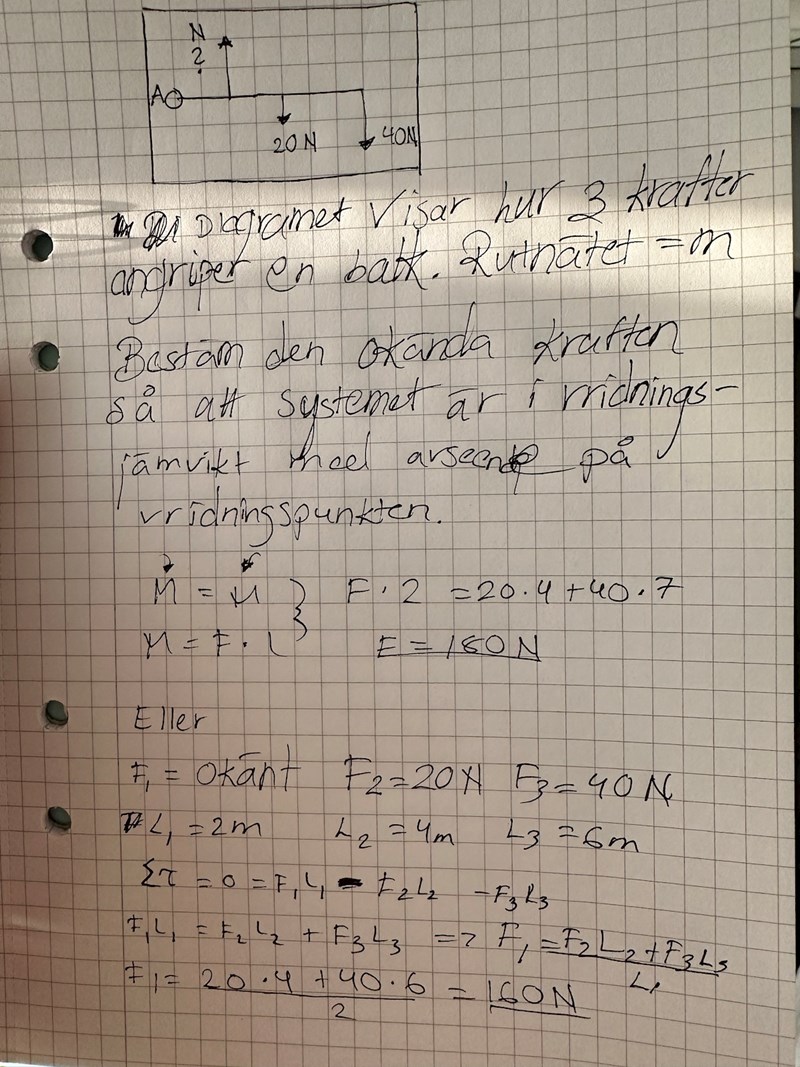 N
?
A
20N
40N
Diagramet Visar hur 3 krafter
angriper en balk. Rutnätet = m
Bestäm den okända kraften
så att systemet är i vridnings-
jämvikt med avseende på
vridningspunkten.
M = M } F · 2 = 20·4 + 40·7
M = F · L F = 180N
Eller
F₁ = Okänt F₂ = 20N F₃ = 40N
L₁ = 2m L₂ = 4m L₃ = 6m
Στ = 0 = F₁L₁ - F₂L₂ - F₃L₃
F₁L₁ = F₂L₂ + F₃L₃ => F₁ = F₂L₂ + F₃L₃ / L₁
F₁ = 20·4 + 40·6 / 2 = 160N